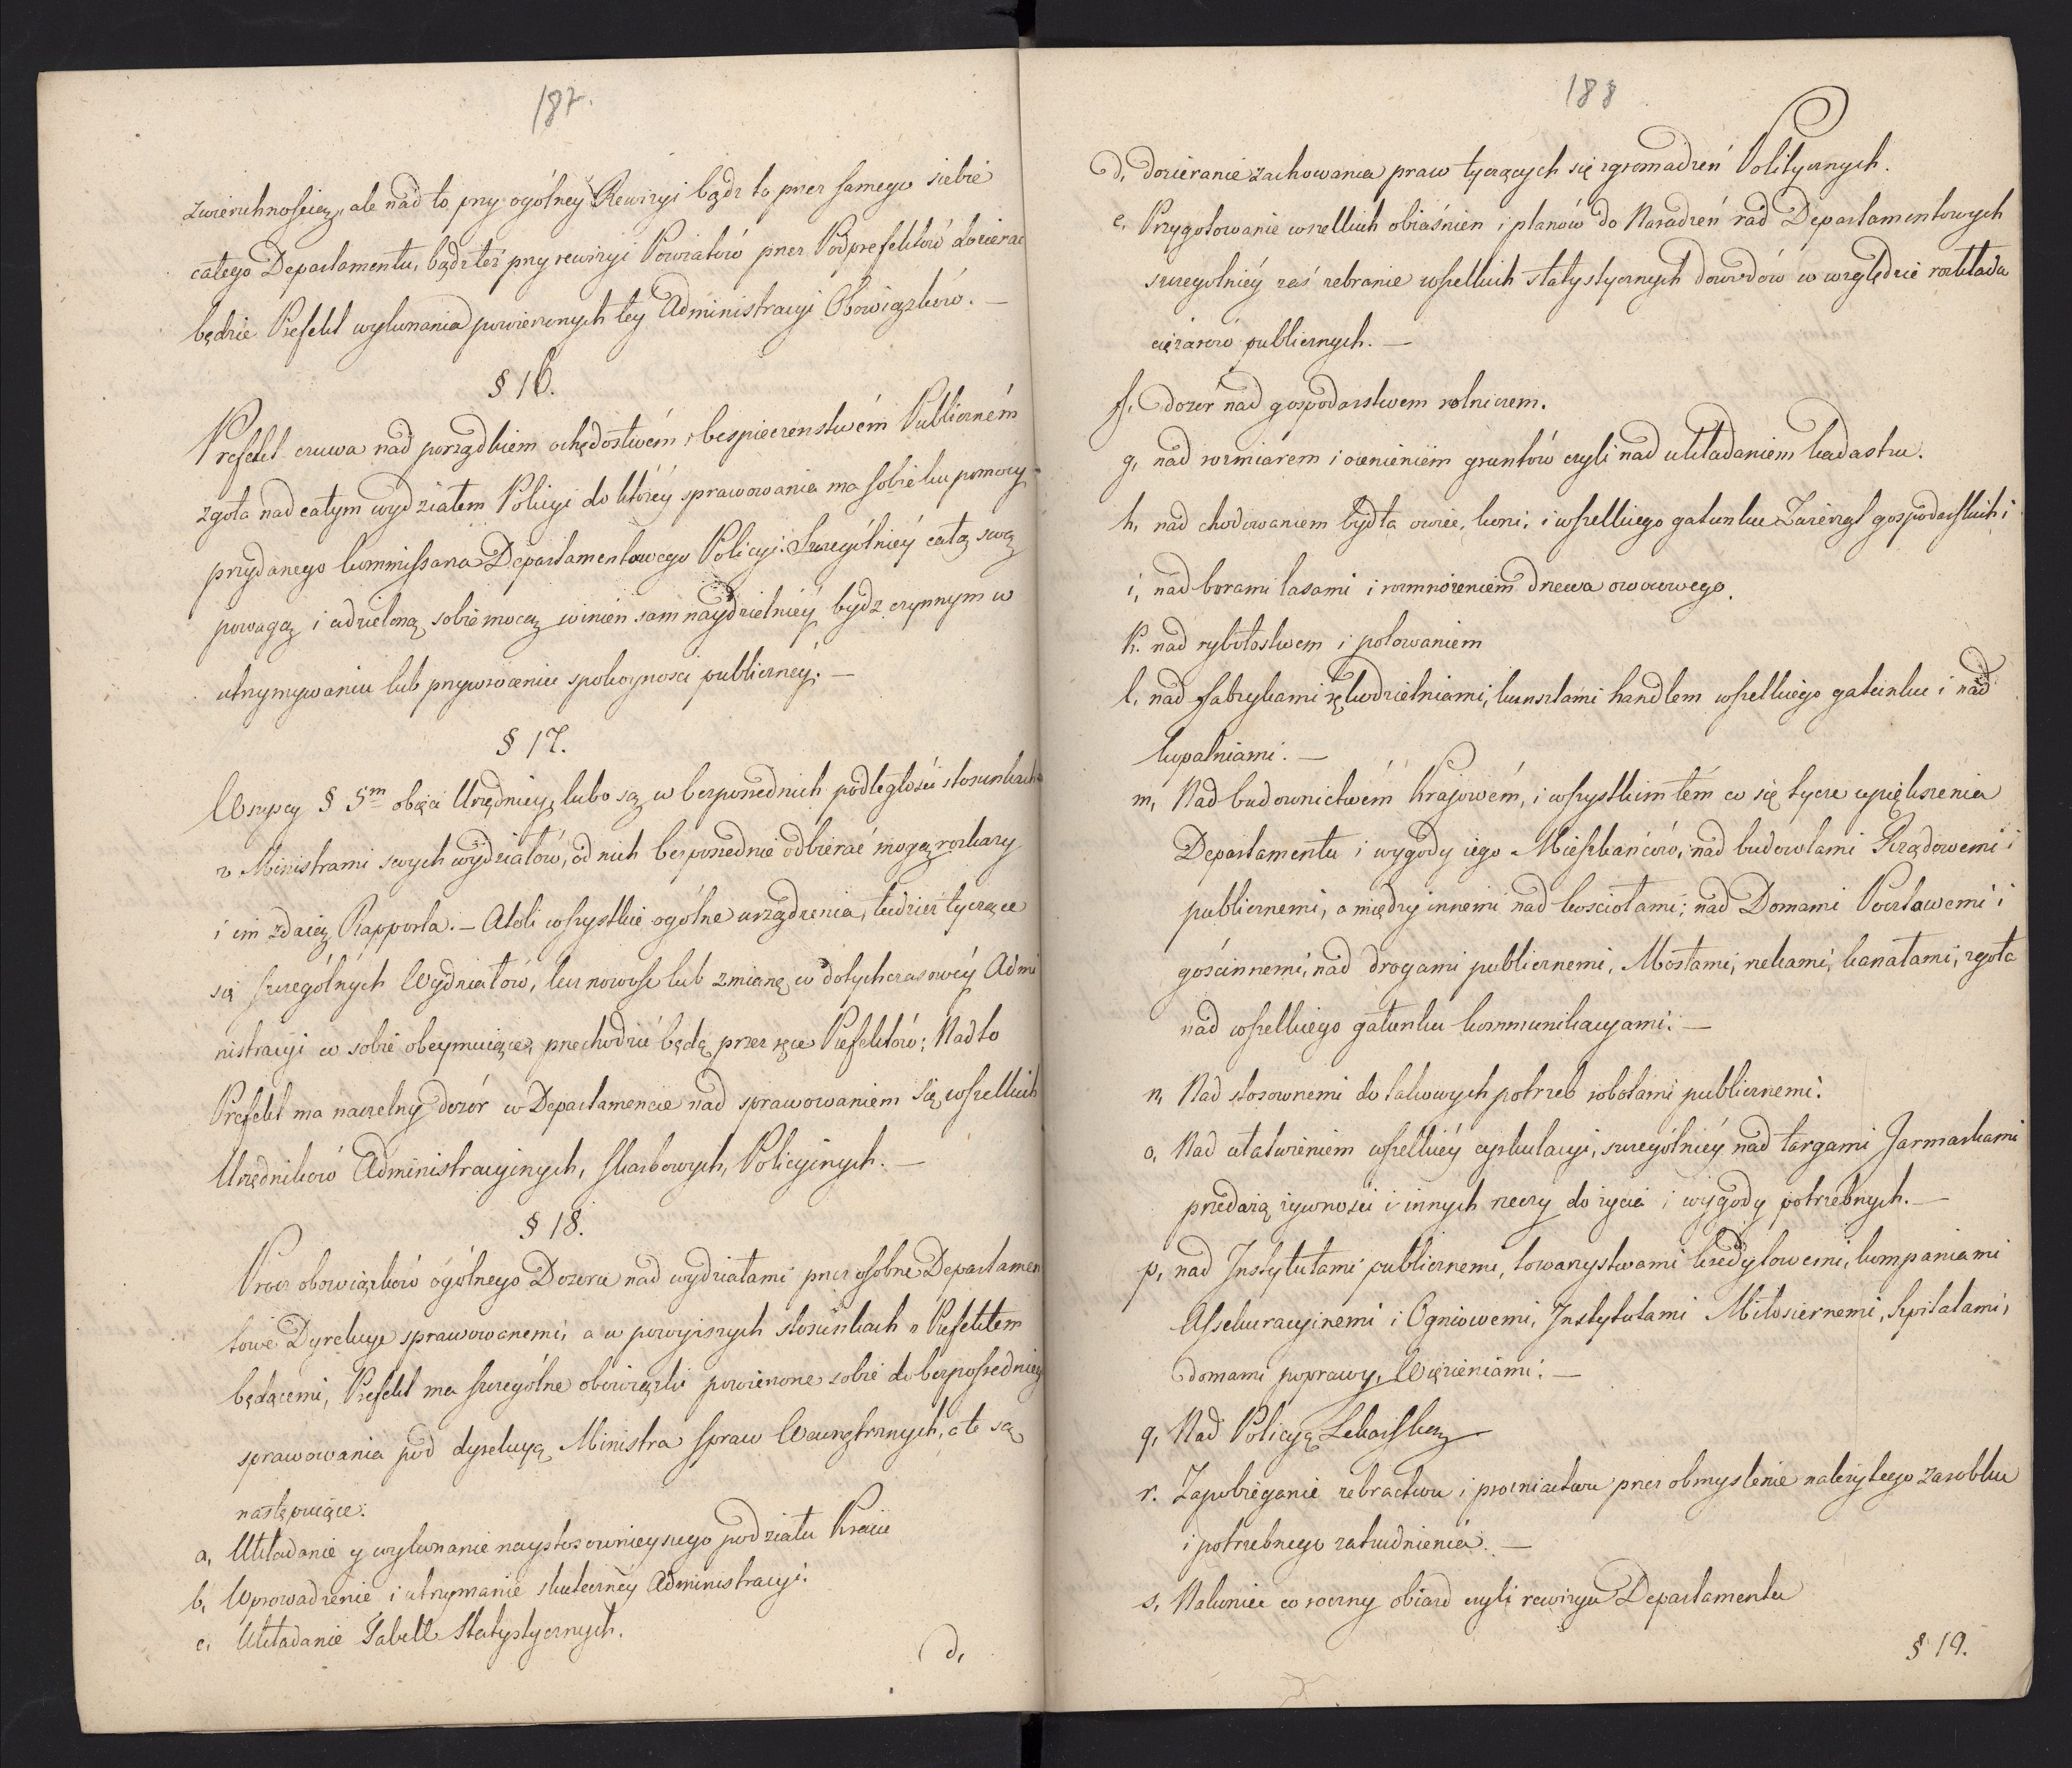 187.
zwierzchnością, ale nad to przy ogólney Rewizyi bądz to przez samego siebie
całego Departamentu, bądz też przy rewizyi Powiatów przez Podprefektów dozierać
będzie Prefekt wykonania powierzonych tey Administracyi Obowiązków. —
§ 16.
Prefekt czuwa nad porządkiem ochędostwém i bespieczeństwém Publiczném
zgoła nad całym wydziałem Policyi do któréy sprawowania ma sobie ku pomocy
przydanego kommissarza Departamentowego Policyi. Szczególniéy całą swą
powagą i udzieloną sobie mocą winien sam naydzielniéy bydz czynnym w
utrzymywaniu lub przywróceniu spokoyności publicznéy. —
§ 17.
Wszyscy § 5m obięci Urzędnicy lubo są w bezposrednich podległości stosunkach
z Ministrami swych wydziałów, od nich bezposrednie odbierać mogą rozkazy
i im zdaią Rapporta. — Atoli wszystkie ogólne urządzenia, tudzież tyczące
się szczególnych Wydziałów, lecz nowość lub zmianę w dotychczasowéy Admi
nistracyi w sobie obeymuiące, przechodzić będą przez ręce Prefektów; Nadto
Prefekt ma naczelny dozór w Departamencie nad sprawowaniem się wszelkich
Urzędników Administracyinych, skarbowych, Policyinych. —
§ 18.
Prócz obowiązków ogólnego Dozoru nad wydziałami przez osobne Departamen
towe Dyrekcye sprawowanemi, a w powyższych stosunkach z Prefektem
będącemi, Prefekt ma szczególne obowiązki powierzone sobie do bezposredniey
sprawowania pod dyrekcyą Ministra spraw Wewnętrznych, a te są
następuiące:
a, Układanie y wykonanie naystosownieyszego podziału Kraiu
b, Wprowadzenie i utrzymanie skuteczney Administracyi.
c, Układanie Tabell Statystycznych.
d,
188
d, dozieranie zachowania praw tyczących się zgromadzeń Politycznych.
e, Przygotowanie wszelkich obiaśnien i planów do Naradzeń rad Departamentowych
szczególniéy zaś zebranie wszelkich statystycznych dowodów w względzie rozkładu
ciężarów publicznych. —
f, dozór nad gospodarstwem rolniczem.
g, nad rozmiarem i ocenieniem gruntów czyli nad układaniem kadastru.
h, nad chodowaniem bydła owiec, koni, i wszelkiego gatunku Zwierząt gospodarskich;
i, nad borami lasami i rozmnożeniem drzewa owocowego.
k. nad rybołostwem i polowaniem
l, nad fabrykami rękodzielniami, kunsztami handlem wszelkiego gatunku i nad
kopalniami. —
m, Nad budownictwém Krajowém, i wszystkim tém co się tycze upiększenia
Departamentu i wygody iego Mieszkańców, nad budowlami Rządowemi i
publicznemi, a między innemi nad kosciołami; nad Domami Pocztowemi i
gościnnemi, nad drogami publicznemi, Mostami, rzekami, kanałami, zgoła
nad wszelkiego gatunku kommunikacyami. —
n, Nad stosownemi do takowych potrzeb robotami publicznemi.
o, Nad ułatwieniem wszelkiéy cyrkulacyi, szczególniéy nad targami Jarmarkami
przedażą żywności i innych rzeczy do życia i wygody potrzebnych. —
p, nad Instytutami publicznemi, towarzystwami kredytowemi, kompaniami
Assekuracyinemi i Ogniowemi, Instytutami Miłosiernemi, szpitalami,
domami poprawy, Więzieniami. —
q, Nad Policyą Lekarską
r. Zapobieganie żebractwu i prozniactwu przez obmyslenie należytego zarobku
i potrzebnego zatrudnienia. —
s, Nakoniec co roczny obiazd czyli rewizya Departamentu
§ 19.